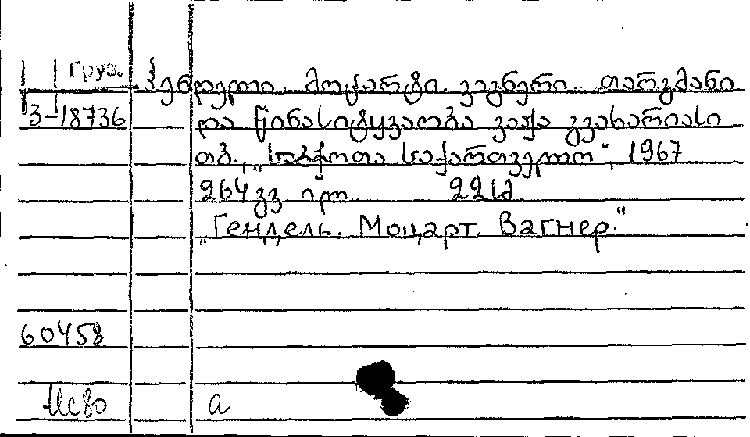 Груз. ჰენდელი. მოცარტი. ვაგნერი. თარგმანი
3-18736 და წინასიტყვაობა ვაჟა გვახარიასი
თბ., „საბჭოთა საქართველო“, 1967
264 გვ. ილ. 22 სმ
„Гендель. Моцарт. Вагнер.“
60458
а